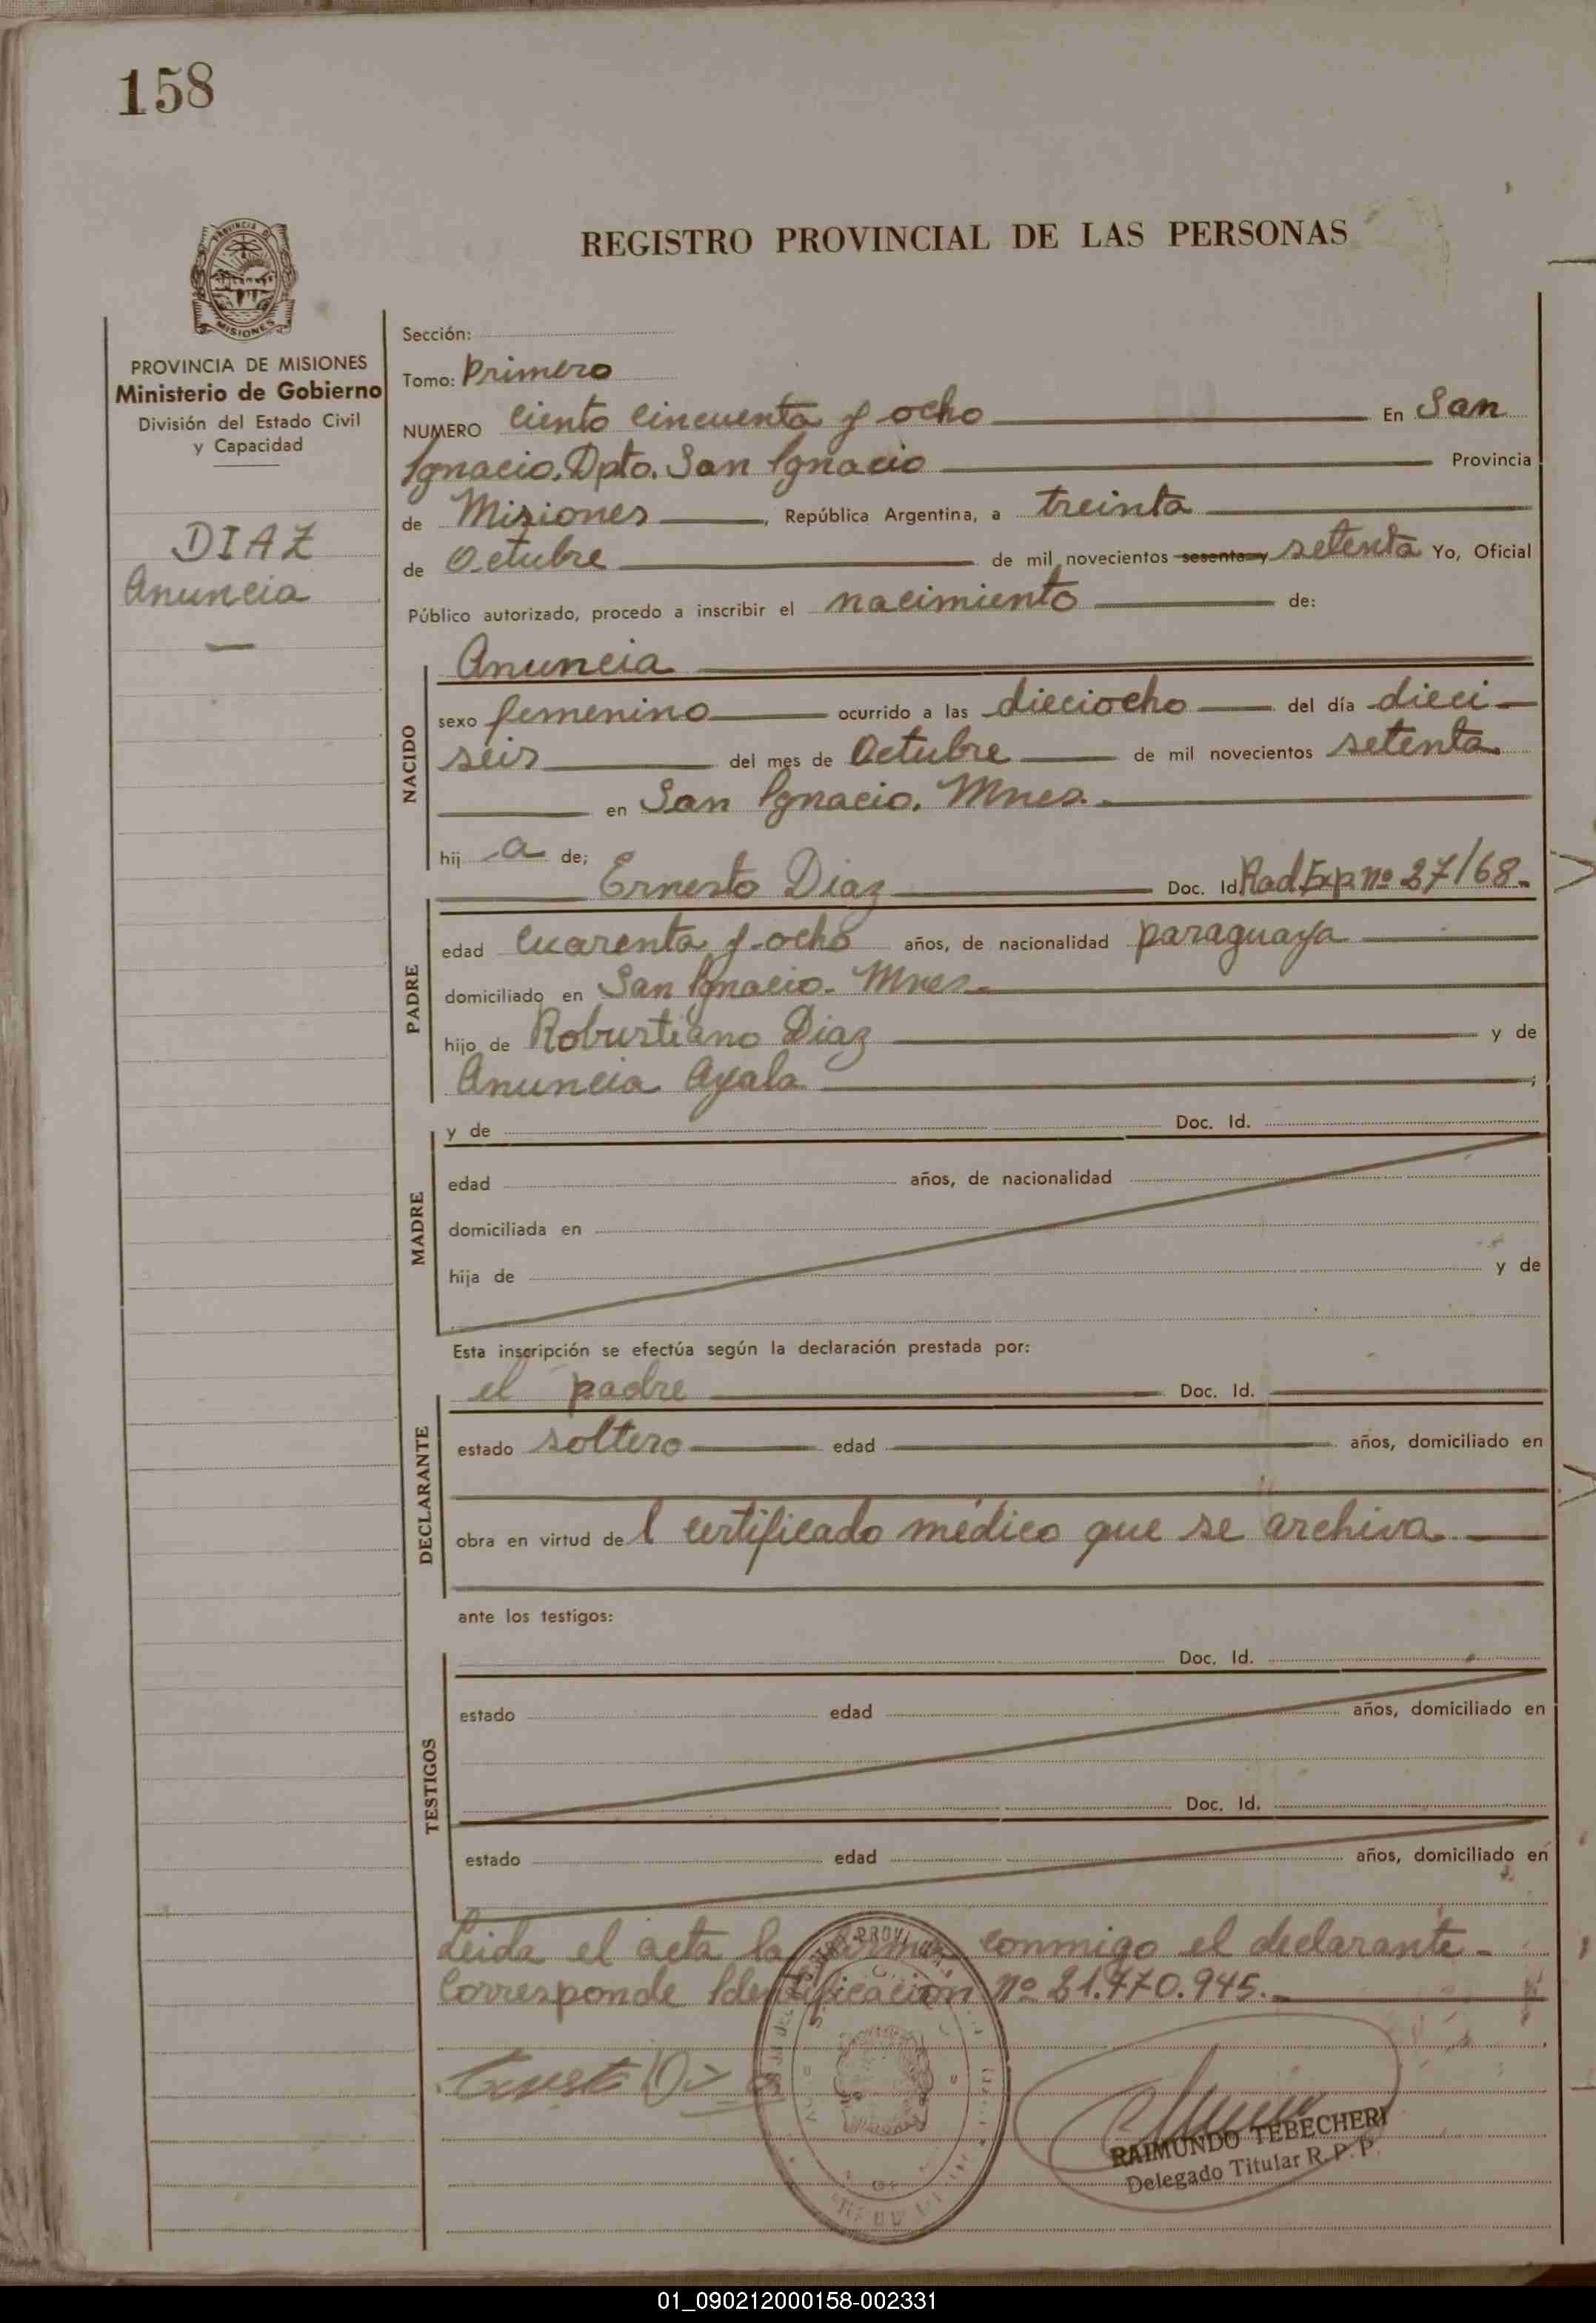 158
PROVINCIA D
MISIONES
REGISTRO PROVINCIAL DE LAS PERSONAS
PROVINCIA DE MISIONES
Ministerio de Gobierno
División del Estado Civil
y Capacidad
DIAZ
Anuncia
Sección:
Tomo: Primero
NUMERO Ciento Cincuenta y ocho En San
Ignacio. Dpto. San Ignacio Provincia
de Misiones, República Argentina, a treinta
de Octubre de mil novecientos sesenta y setenta Yo, Oficial
Público autorizado, procedo a inscribir el nacimiento de:
Anuncia
NACIDO
sexo femenino ocurrido a las dieciocho del día dieci-
seis del mes de Octubre de mil novecientos setenta
en San Ignacio. Mnes.
hij a de;
Ernesto Diaz Doc. Id Rad. Exp. nº 27/68.
PADRE
edad Cuarenta y ocho años, de nacionalidad paraguaya
domiciliado en San Ignacio. Mnes.
hijo de Robustiano Diaz y de
Anuncia Ayala ;
MADRE
y de Doc. Id.
edad años, de nacionalidad
domiciliada en
hija de y de
Esta inscripción se efectúa según la declaración prestada por:
el padre Doc. Id.
DECLARANTE
estado soltero edad años, domiciliado en
obra en virtud de l certificado médico que se archiva
ante los testigos:
TESTIGOS
Doc. Id.
estado edad años, domiciliado en
Doc. Id.
estado edad años, domiciliado en
Leida el acta la firma conmigo el declarante.
Corresponde Identificación nº 21.770.945.
RAIMUNDO TEBECHERI
Delegado Titular R. P. P.
01_090212000158-002331